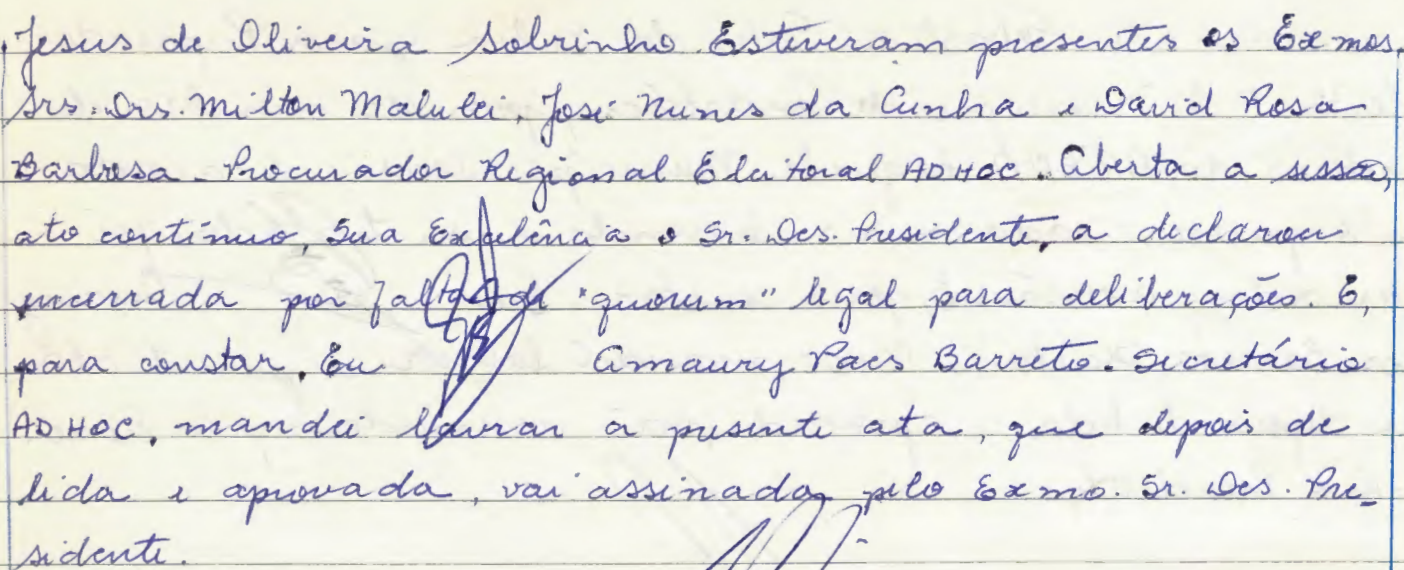 Jesus de Oliveira Sobrinho. Estiveram presentes os Exmos.
Srs. Drs. Milton Malulei, José Nunes da Cunha e David Rosa
Barbosa - Procurador Regional Eleitoral AD HOC. Aberta a sessão,
ato contínuo, Sua Excelência o Sr. Des. Presidente, a declarou
encerrada por falta de "quorum" legal para deliberações. E,
para constar, Eu Amaury Paes Barreto. Secretário
AD HOC, mandei lavrar a presente ata, que depois de
lida e aprovada, vai assinada pelo Exmo. Sr. Des. Pre_
sidente.